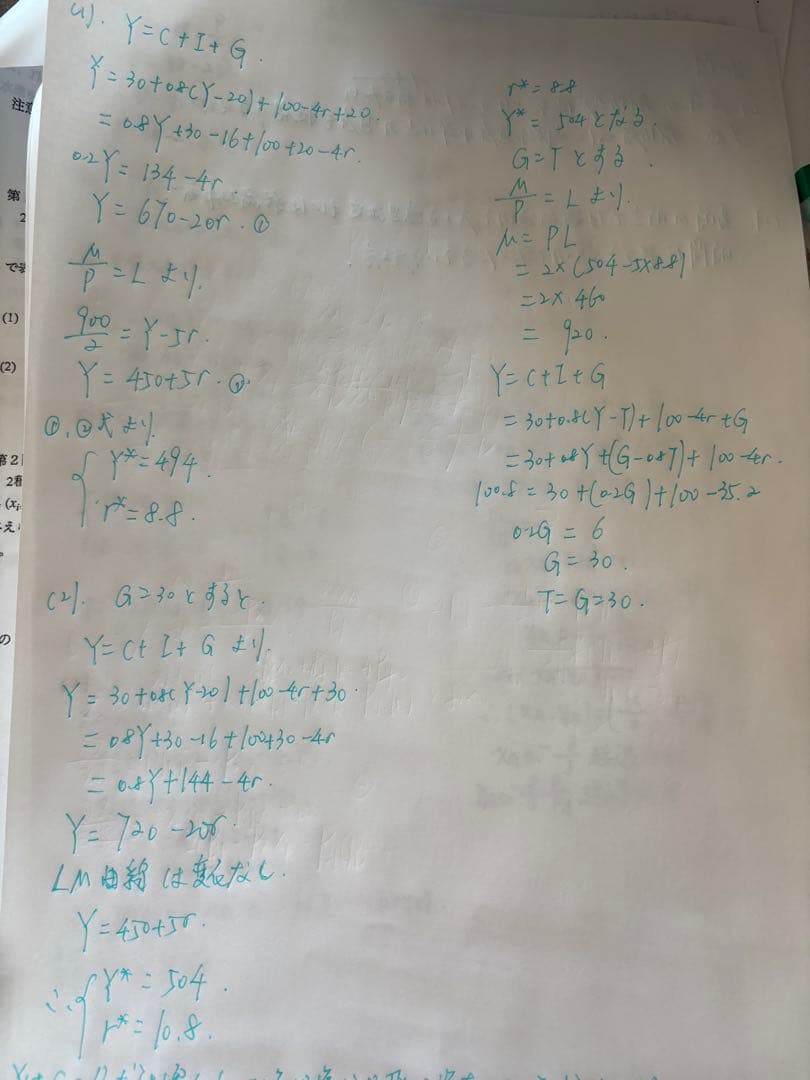 (1).
Y=C+I+G.
Y=30+0.8(Y-20)+100-4r+20.
=0.8Y+30-16+100+20-4r.
0.2Y=134-4r.
Y=670-20r.①
M/P=Lより.
900/2=Y-5r.
Y=450+5r.②.
①,②式より.
Y*=494.
r*=8.8.
(2). G=30とすると.
Y=C+I+Gより.
Y=30+0.8(Y-20)+100-4r+30.
=0.8Y+30-16+100+30-4r
=0.8Y+144-4r.
Y=720-20r.
LM曲線は変化なし.
Y=450+5r.
∴Y*=504.
r*=10.8.
r*=8.8
Y*=504となる.
G=Tとする.
M/P=Lより.
M=PL
=2×(504-5×8.8)
=2×460
=920.
Y=C+I+G
=30+0.8(Y-T)+100-4r+G
=30+0.8Y+(G-0.8T)+100-4r.
100.8=30+(0.2G)+100-35.2
0.2G=6
G=30.
T=G=30.
第
2
で
(1)
(2)
第2
2
(xi
の